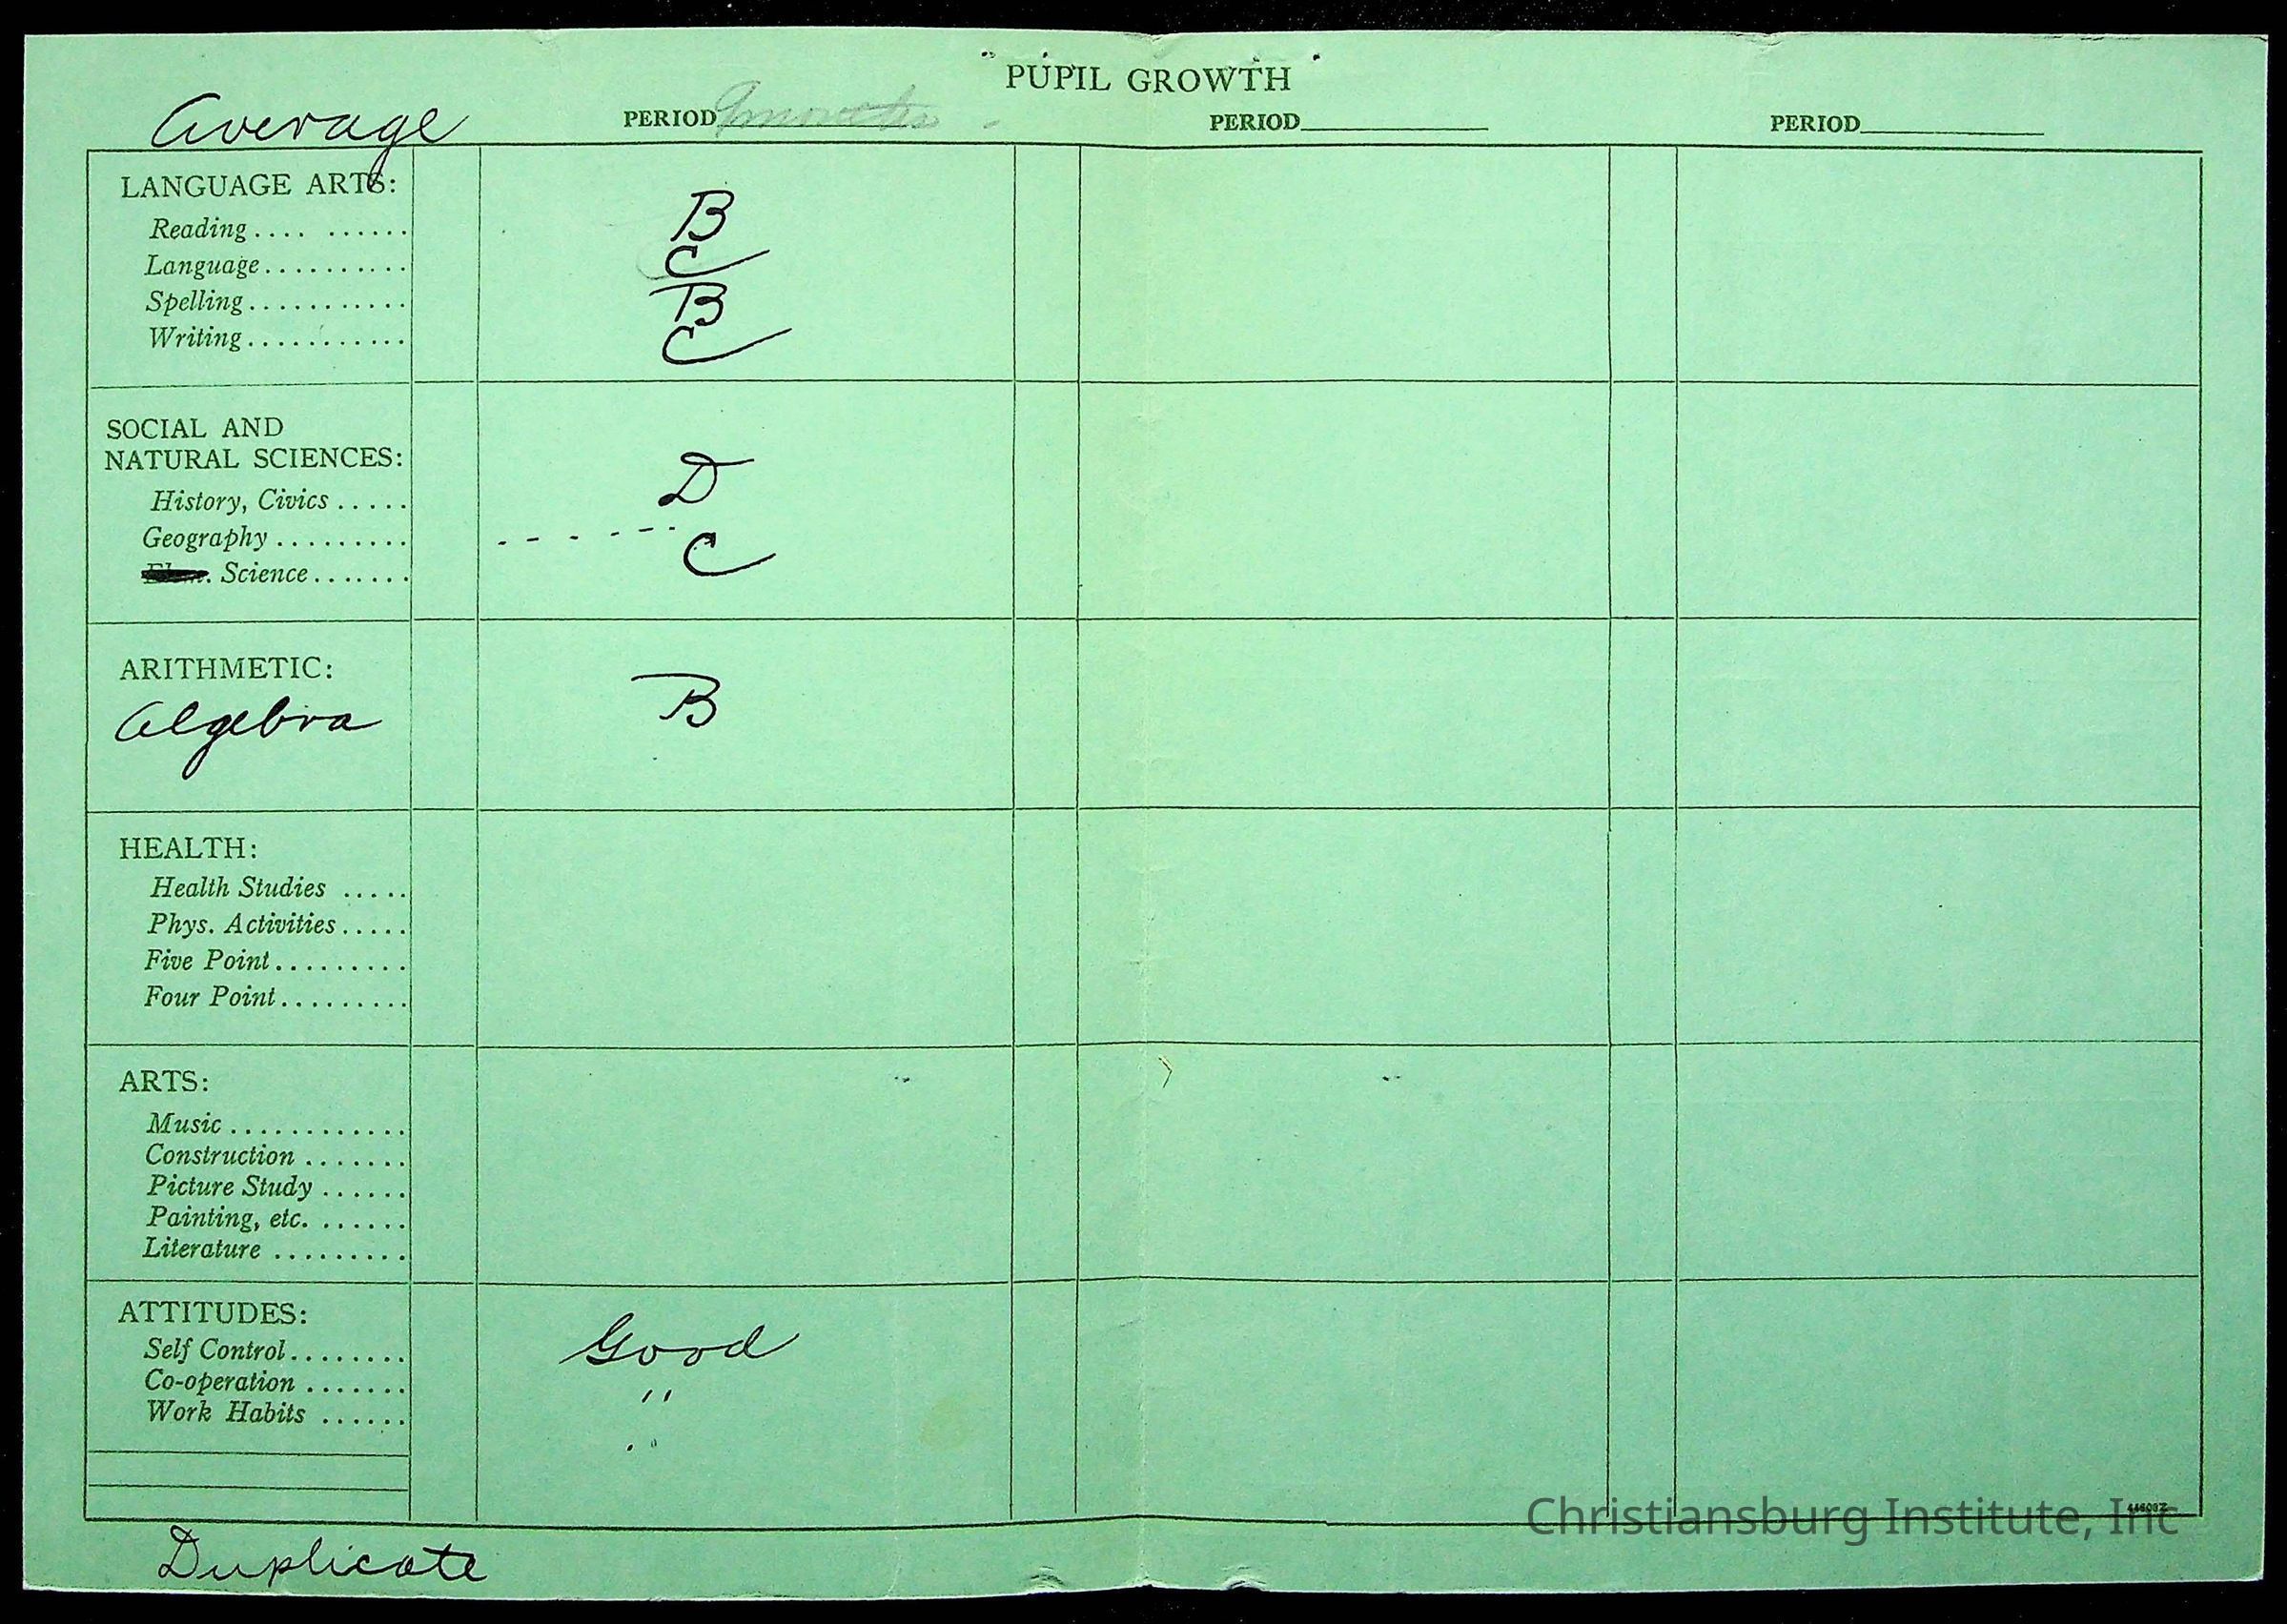 PUPIL GROWTH
Average
PERIOD 9 months
PERIOD
PERIOD
LANGUAGE ARTS:
Reading.... ...... B
Language.......... C
Spelling........... B
Writing........... C
SOCIAL AND
NATURAL SCIENCES:
History, Civics ..... D
Geography ......... - - - - - -
Science....... C
ARITHMETIC:
Algebra B
HEALTH:
Health Studies .....
Phys. Activities.....
Five Point.........
Four Point.........
ARTS:
Music ............
Construction .......
Picture Study ......
Painting, etc. .......
Literature .........
ATTITUDES:
Self Control........ Good
Co-operation ....... "
Work Habits ...... "
Duplicate
Christiansburg Institute, Inc